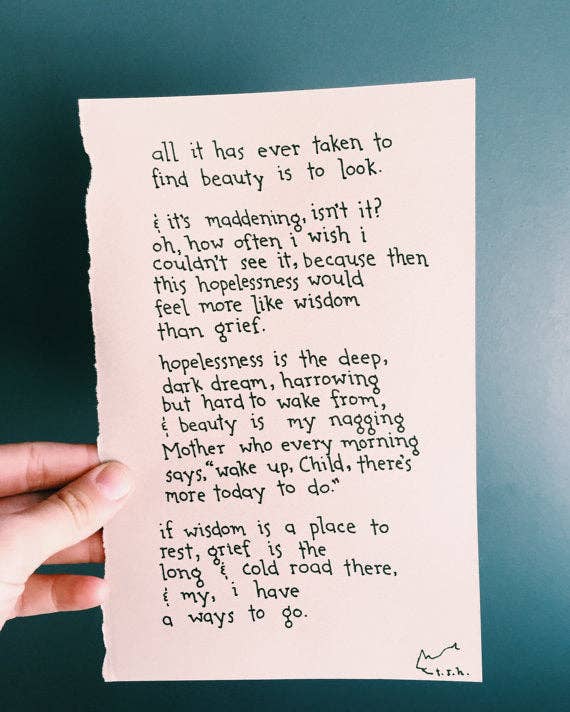 all it has ever taken to
find beauty is to look.
& it's maddening, isn't it?
oh, how often i wish i
couldn't see it, because then
this hopelessness would
feel more like wisdom
than grief.
hopelessness is the deep,
dark dream, harrowing
but hard to wake from,
& beauty is my nagging
Mother who every morning
says, "wake up, Child, there's
more today to do."
if wisdom is a place to
rest, grief is the
long & cold road there,
& my, i have
a ways to go.
t.s.h.